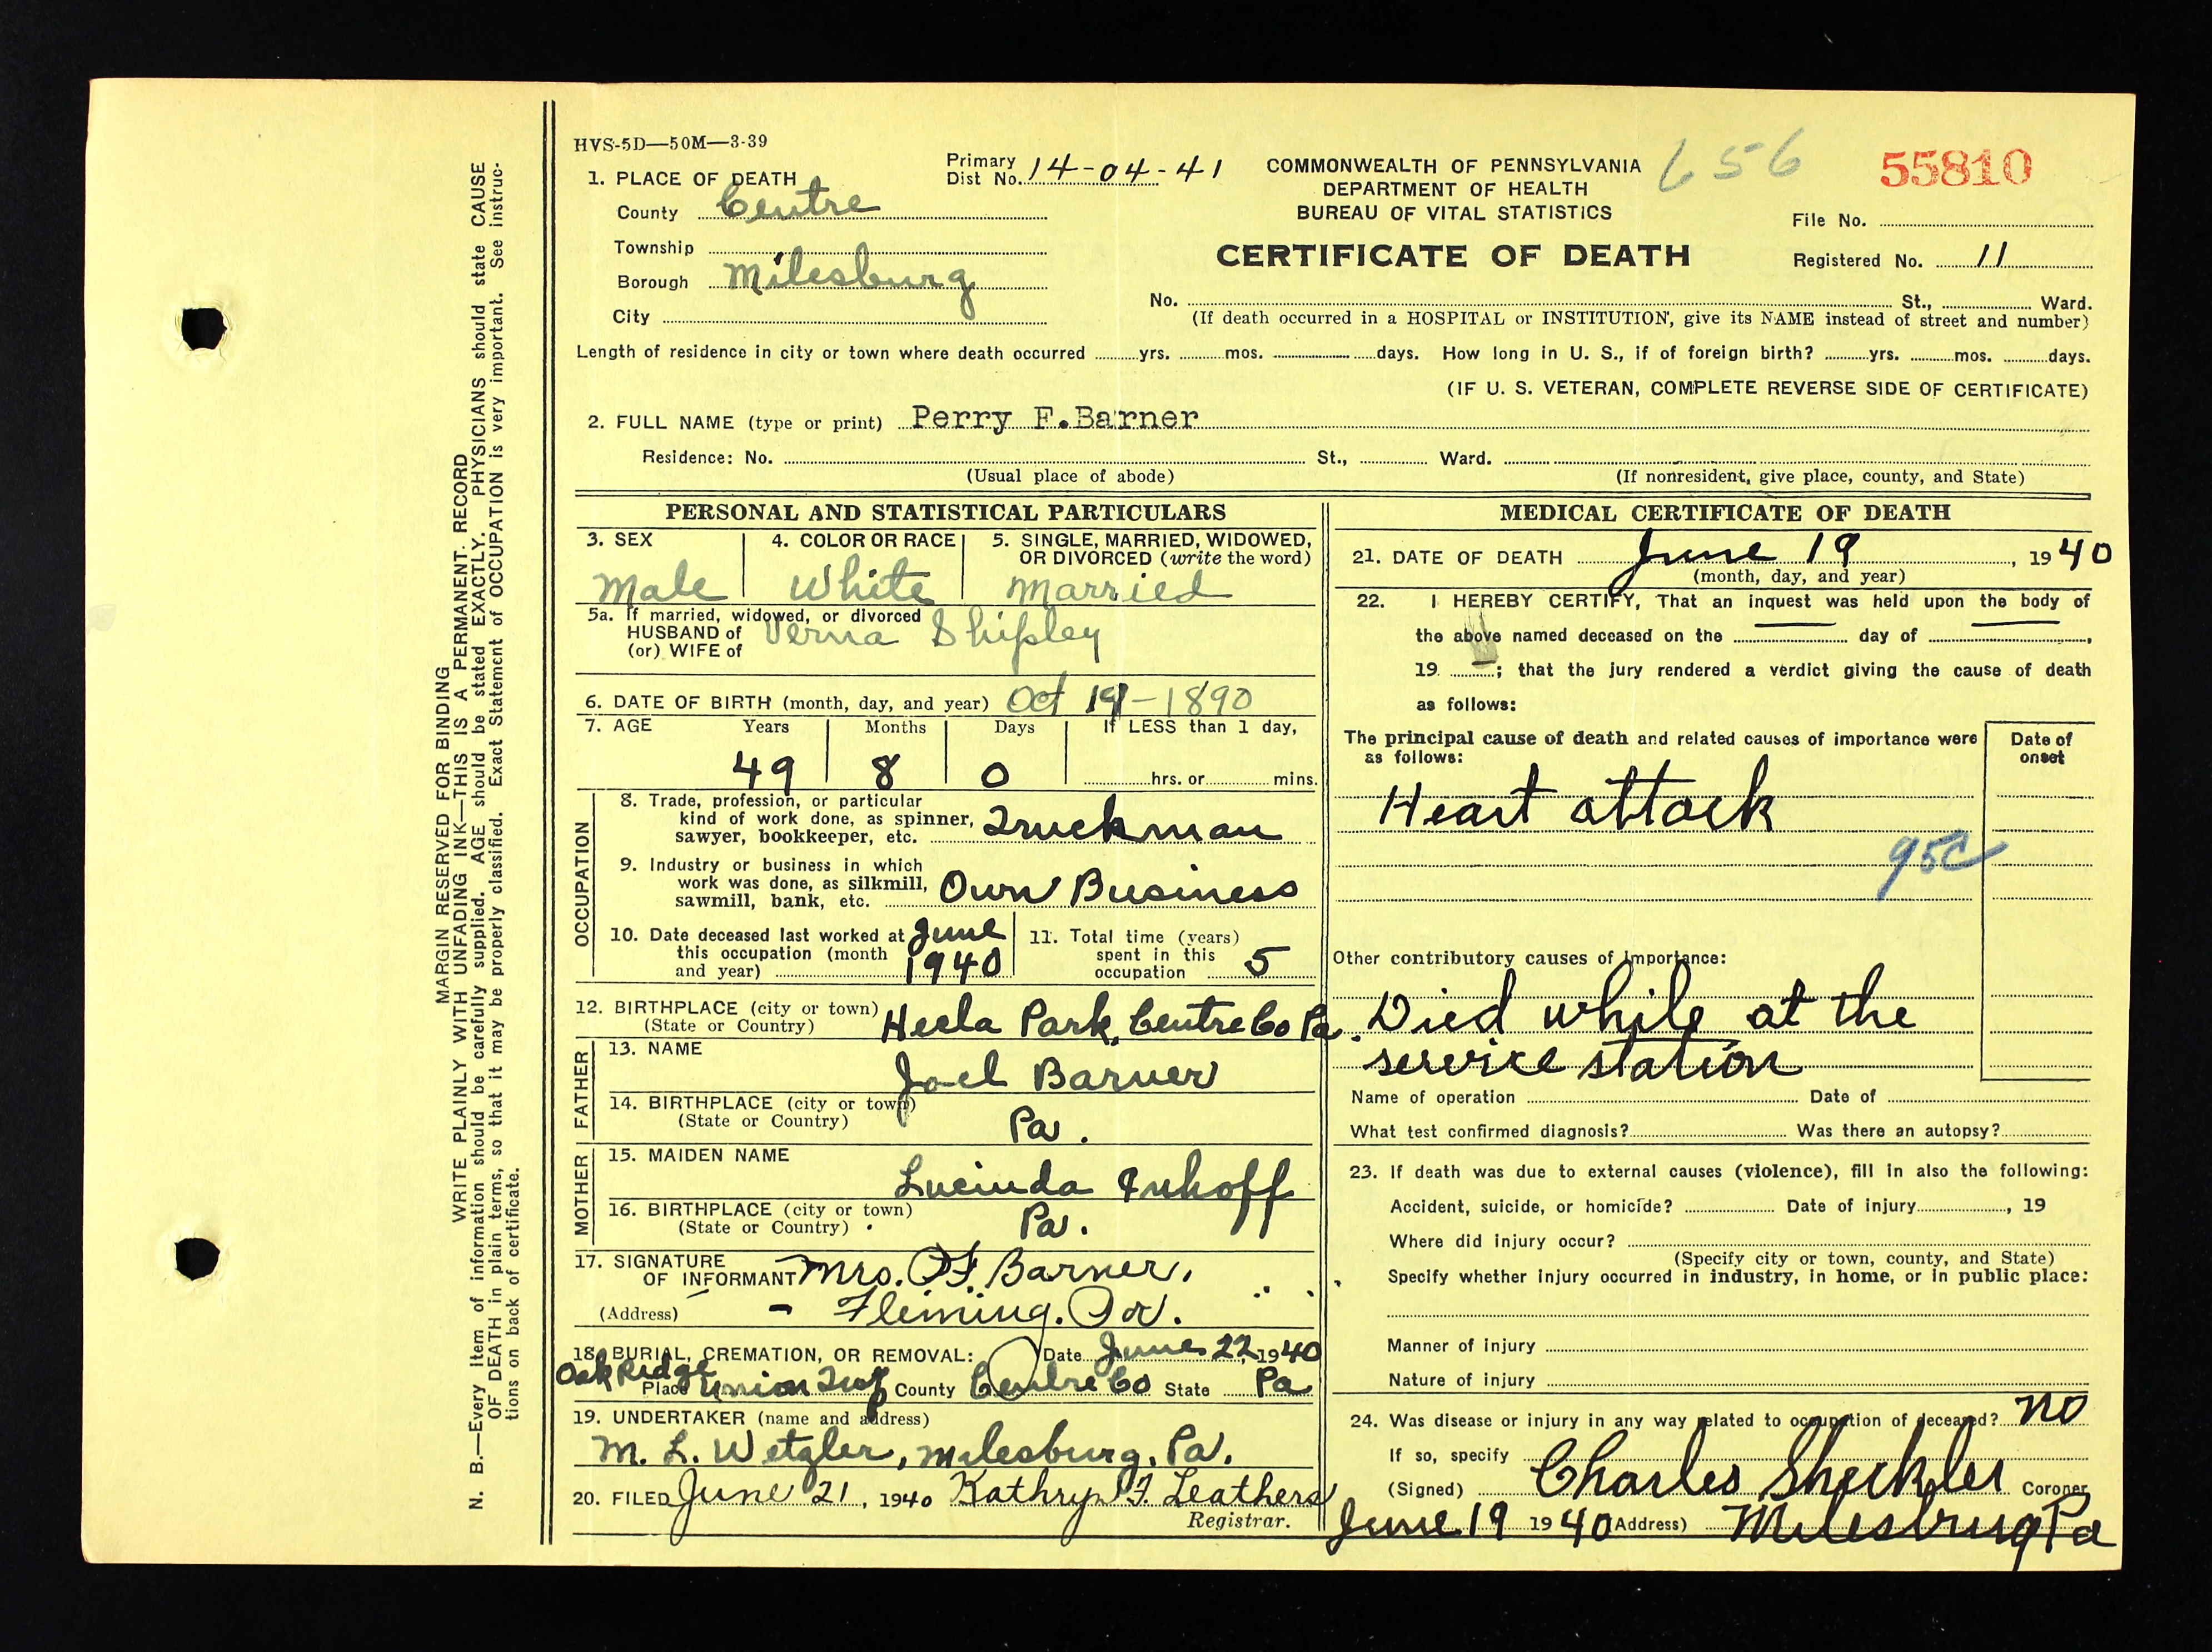 HVS-5D—50M—3-39
1. PLACE OF DEATH
County Centre
Township
Borough Milesburg
City
Primary
Dist No. 14-04-41
COMMONWEALTH OF PENNSYLVANIA
DEPARTMENT OF HEALTH
BUREAU OF VITAL STATISTICS
CERTIFICATE OF DEATH
656
55810
File No.
Registered No. 11
No. St., Ward.
(If death occurred in a HOSPITAL or INSTITUTION, give its NAME instead of street and number)
Length of residence in city or town where death occurred yrs. mos. days. How long in U. S., if of foreign birth? yrs. mos. days.
(IF U. S. VETERAN, COMPLETE REVERSE SIDE OF CERTIFICATE)
2. FULL NAME (type or print) Perry F. Barner
Residence: No. St., Ward.
(Usual place of abode) (If nonresident, give place, county, and State)
PERSONAL AND STATISTICAL PARTICULARS
3. SEX
Male
4. COLOR OR RACE
White
5. SINGLE, MARRIED, WIDOWED,
OR DIVORCED (write the word)
Married
5a. If married, widowed, or divorced
HUSBAND of
(or) WIFE of
Verna Shipley
6. DATE OF BIRTH (month, day, and year) Oct 19-1890
7. AGE Years Months Days If LESS than 1 day,
49 8 0 hrs. or mins.
OCCUPATION
8. Trade, profession, or particular
kind of work done, as spinner,
sawyer, bookkeeper, etc. Truckman
9. Industry or business in which
work was done, as silkmill,
sawmill, bank, etc. Own Business
10. Date deceased last worked at
this occupation (month
and year) June 1940
11. Total time (years)
spent in this
occupation 5
12. BIRTHPLACE (city or town)
(State or Country) Hecla Park, Centre Co Pa.
FATHER
13. NAME
Joel Barner
14. BIRTHPLACE (city or town)
(State or Country) Pa.
MOTHER
15. MAIDEN NAME
Lucinda Imhoff
16. BIRTHPLACE (city or town)
(State or Country) Pa.
17. SIGNATURE
OF INFORMANT Mrs. P.F. Barner.
(Address) - Fleming. Pa.
18. BURIAL, CREMATION, OR REMOVAL: Date June 22, 1940
Oak Ridge
Place Union Twp County Centre Co State Pa
19. UNDERTAKER (name and address)
M. L. Wetzler, Milesburg, Pa.
20. FILED June 21, 1940 Kathryn F. Leathers
Registrar.
MEDICAL CERTIFICATE OF DEATH
21. DATE OF DEATH June 19, 1940
(month, day, and year)
22. I HEREBY CERTIFY, That an inquest was held upon the body of
the above named deceased on the day of ,
19 —; that the jury rendered a verdict giving the cause of death
as follows:
The principal cause of death and related causes of importance were
as follows:
Date of
onset
Heart attack
95C
Other contributory causes of importance:
Died while at the
service station
Name of operation Date of
What test confirmed diagnosis? Was there an autopsy?
23. If death was due to external causes (violence), fill in also the following:
Accident, suicide, or homicide? Date of injury , 19
Where did injury occur?
(Specify city or town, county, and State)
Specify whether injury occurred in industry, in home, or in public place:
Manner of injury
Nature of injury
24. Was disease or injury in any way related to occupation of deceased? No
If so, specify
(Signed) Charles Sheckler Coroner
June 19 1940 (Address) Milesburg Pa
MARGIN RESERVED FOR BINDING
WRITE PLAINLY WITH UNFADING INK—THIS IS A PERMANENT RECORD
N. B.—Every item of information should be carefully supplied. AGE should be stated EXACTLY. PHYSICIANS should state CAUSE
OF DEATH in plain terms, so that it may be properly classified. Exact Statement of OCCUPATION is very important. See instruc-
tions on back of certificate.